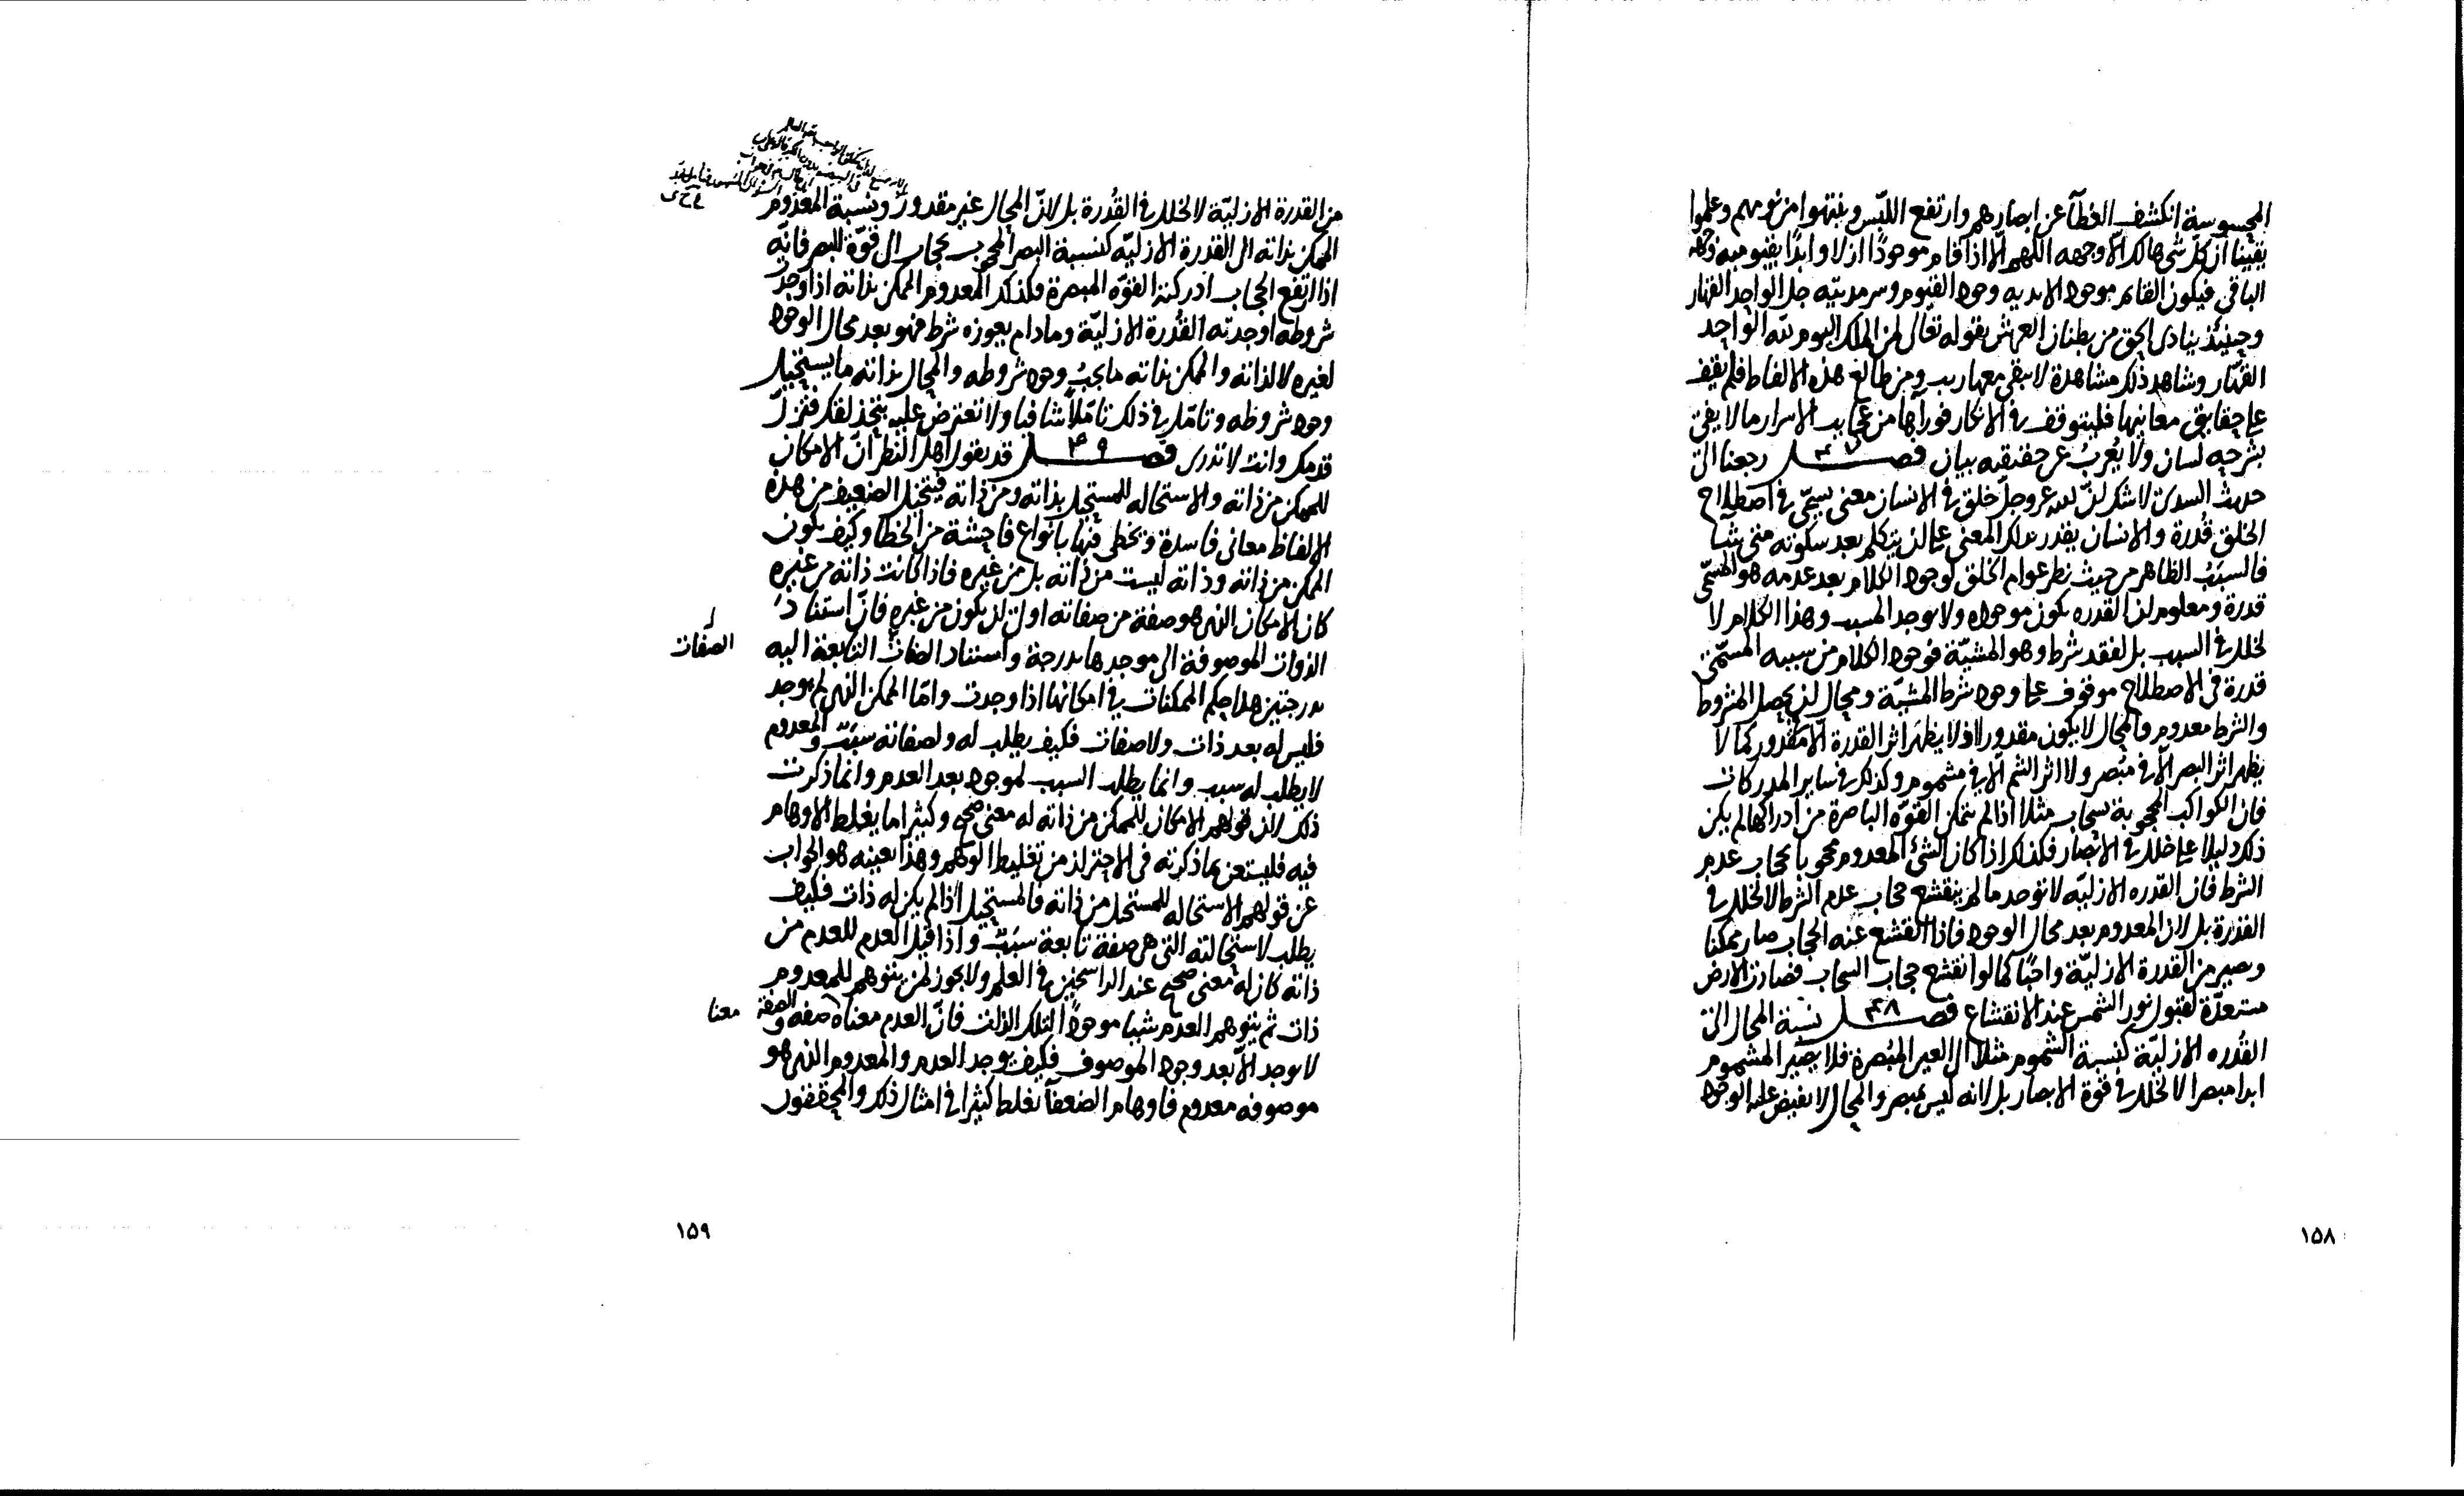 المحسوسة انكشف الغطآ عن ابصارهم وارتفع اللبس وتنبهوا من نومهم وعلموا
يقينا ان كل شى هالك الا وجهه اللهم الا اذا قام موجودا ازلا وابدا بقيومية وجهه
الباقى فيكون القايم موجودا لابديه وجود القيوم وسرمديته جل الواحد القهار
وحينئذ ينادى الحق من بطنان العرش بقوله تعالى لمن الملك اليوم لله الواحد
القهار وشاهد ذلك مشاهدة لا يبقى معها ريب ومن طالع هذه الالفاظ فلم يقف
على حقايق معانيها فليتوقف فى الانكار فورآها من عجايب الاسرار ما لا يفى
بشرحه لسان ولا يعرب عن حقيقته بيان فصل ٤٧ رجعنا الى
حديث لا شك ان لله عز وجل خلق فى الانسان معنى يسمى فى اصطلاح
الخلق قدرة والانسان يقدر بذلك المعنى على ان يتكلم بعد سكوته متى شآ
فالسبب الظاهر من حيث نظر عوام الخلق لوجود الكلام بعد عدمه هو المسمى
قدرة ومعلوم ان القدره تكون موجوده ولا يوجد المسبب وهذا الكلام لا
لخلل فى السبب بل لفقد شرط وهو المشية فوجود الكلام من سببه المسمى
قدرة فى الاصطلاح موقوف على وجود شرط المشية ومحال ان يحصل المشروط
والشرط معدوم والمحال لا يكون مقدورا اذ لا يظهر اثر القدرة الا فى مقدور كما لا
يظهر اثر البصر الا فى مبصر ولا اثر الشم الا فى مشموم وكذلك فى ساير المدركات
فان الكواكب المحجوبة بسحاب مثلا اذا لم تتمكن القوه الباصرة من ادراكها لم يكن
ذلك دليلا على خلل فى الابصار فكذلك اذا كان الشئ المعدوم محجوبا بحجاب عدم
الشرط فان القدره الازليه لا توجد ما لم ينقشع حجاب عدم الشرط لا لخلل فى
القدرة بل لان المعدوم بعد محال الوجود فاذا انقشع عنه الحجاب صار ممكنا
ويصير من القدرة الازلية واجبا كما لو انقشع حجاب السحاب فصارت الارض
مستعدة لقبول نور الشمس عند الانقشاع فصل ٤٨ نسبة المحال الى
القدره الازلية كنسبة المشموم مثلا الى العين المبصرة فلا يصير المشموم
ابدا مبصرا لا لخلل فى قوة الابصار بل لانه ليس بمبصر والمحال لا يفيض عليه الوجود
١٥٨
من القدرة الازلية لا لخلل فى القدرة بل لان المحال غير مقدور ونسبة المعدوم
الممكن بذاته الى القدرة الازلية كنسبة البصر المحجوب بحجاب الى قوة البصر فانه
اذا ارتفع الحجاب ادركته القوه المبصرة فكذلك المعدوم الممكن بذاته اذا وجد
شروطه اوجدته القدرة الازلية وما دام يعوزه شرط فهو بعد محال الوجود
لغيره لا لذاته والممكن بذاته ما يجب وجود شروطه والمحال بذاته ما يستحيل
وجود شروطه وتامل فى ذلك تاملا شافيا ولا تعترض عليه فتزل
قدمك وانت لا تدرى فصل ٤٩ قد يقول اهل النظر ان الامكان
للممكن من ذاته والاستحاله للمستحيل بذاته ومن ذاته فيتخيل الضعيف من هذه
الالفاظ معانى فاسدة ويخطى فيها بانواع فاحشة من الخطا وكيف يكون
الممكن من ذاته وذاته ليست من ذاته بل من غيره فاذا كانت ذاته من غيره
كان الامكان الذى هو صفة من صفاته اولى ان يكون من غيره فان استناد
الذوات الموصوفة الى موجدها بدرجة واستناد الصفات التابعة اليه
الصفات
بدرجتين هذا حكم الممكنات فى امكانها اذا وجدت واما الممكن الذى لم يوجد
فليس له بعد ذات ولا صفات فكيف يطلب له ولصفاته سبب والمعدوم
لا يطلب له سبب وانما يطلب السبب لموجود بعد العدم وانما ذكرت
ذلك لان قولهم الامكان للممكن من ذاته له معنى صحيح وكثيرا ما يغلط الاوهام
فيه فليستعن بما ذكرته فى الاحتراز من تغليط الوهم وهذا بعينه هو الجواب
عن قولهم الاستحاله للمستحيل من ذاته فالمستحيل اذا لم يكن له ذات فكيف
يطلب لاستحالته التى هى صفة تابعة سبب واذا قيل العدم للعدم من
ذاته كان له معنى صحيح عند الراسخين فى العلم ولا يجوز لمن يتوهم للمعدوم
ذات ثم يتوهم العدم شيا موجودا لتلك الذات فان العدم معناه صفه والصفة
معنا
لا يوجد الا بعد وجود الموصوف فكيف يوجد العدم والمعدوم الذى هو
موصوفه معدوم فاوهام الضعفآ تغلط كثيرا فى امثال ذلك والمحققون
١٥٩